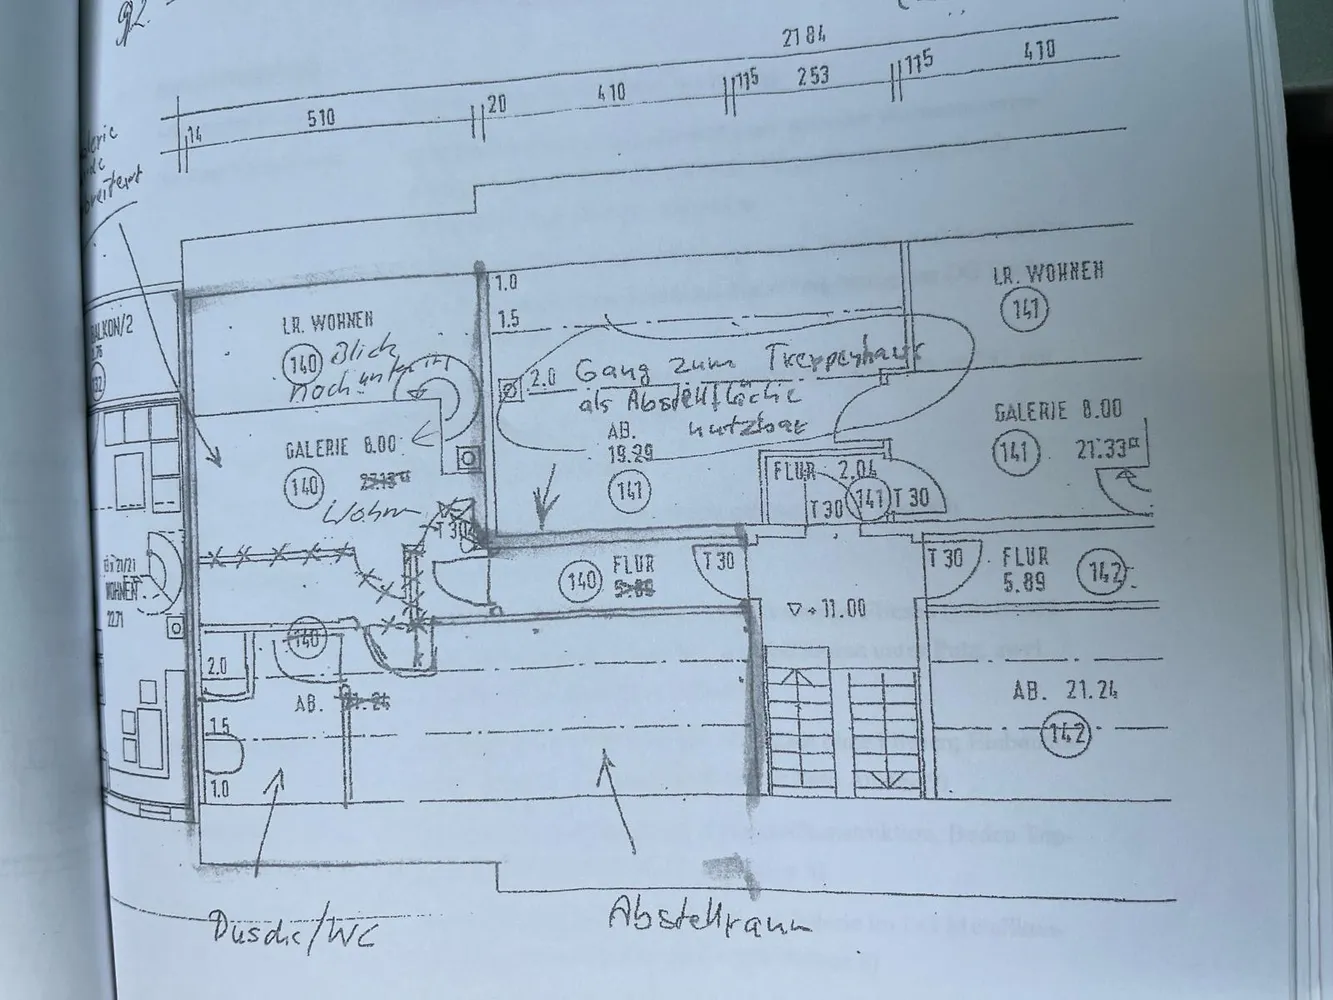 2184
510
20
410
115
253
115
410
14
1.0
LR. WOHNEN
141
1.5
LR. WOHNEN
140
Blick
nach unten
BALKON/2
2.0
Gang zum Treppenhaus
als Abstellfläche
nutzbar
GALERIE 8.00
141
21.33
AB.
19.29
141
GALERIE 8.00
140
Wohn
FLUR 2.04
T30
141
T30
T30
T30
FLUR
140
T30
FLUR
5.89
142
+11.00
140
2.0
AB.
1.5
1.0
AB. 21.24
142
Dusche/WC
Abstellraum